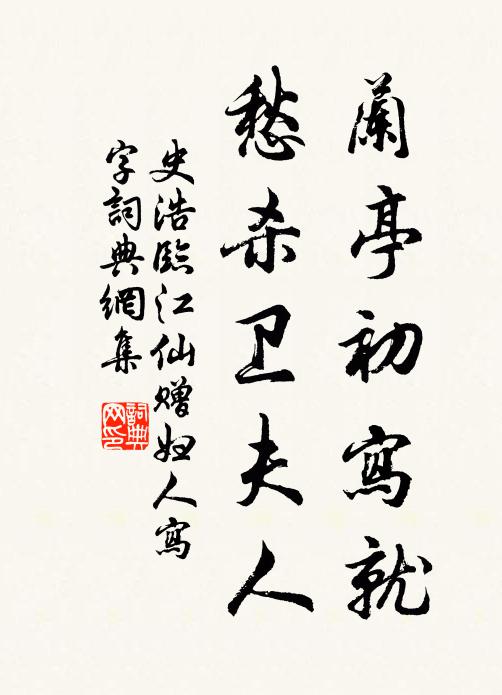 蘭亭初寫就
愁杀卫夫人
史浩臨江仙赠妇人寫
字詞典網集
詞典
网印